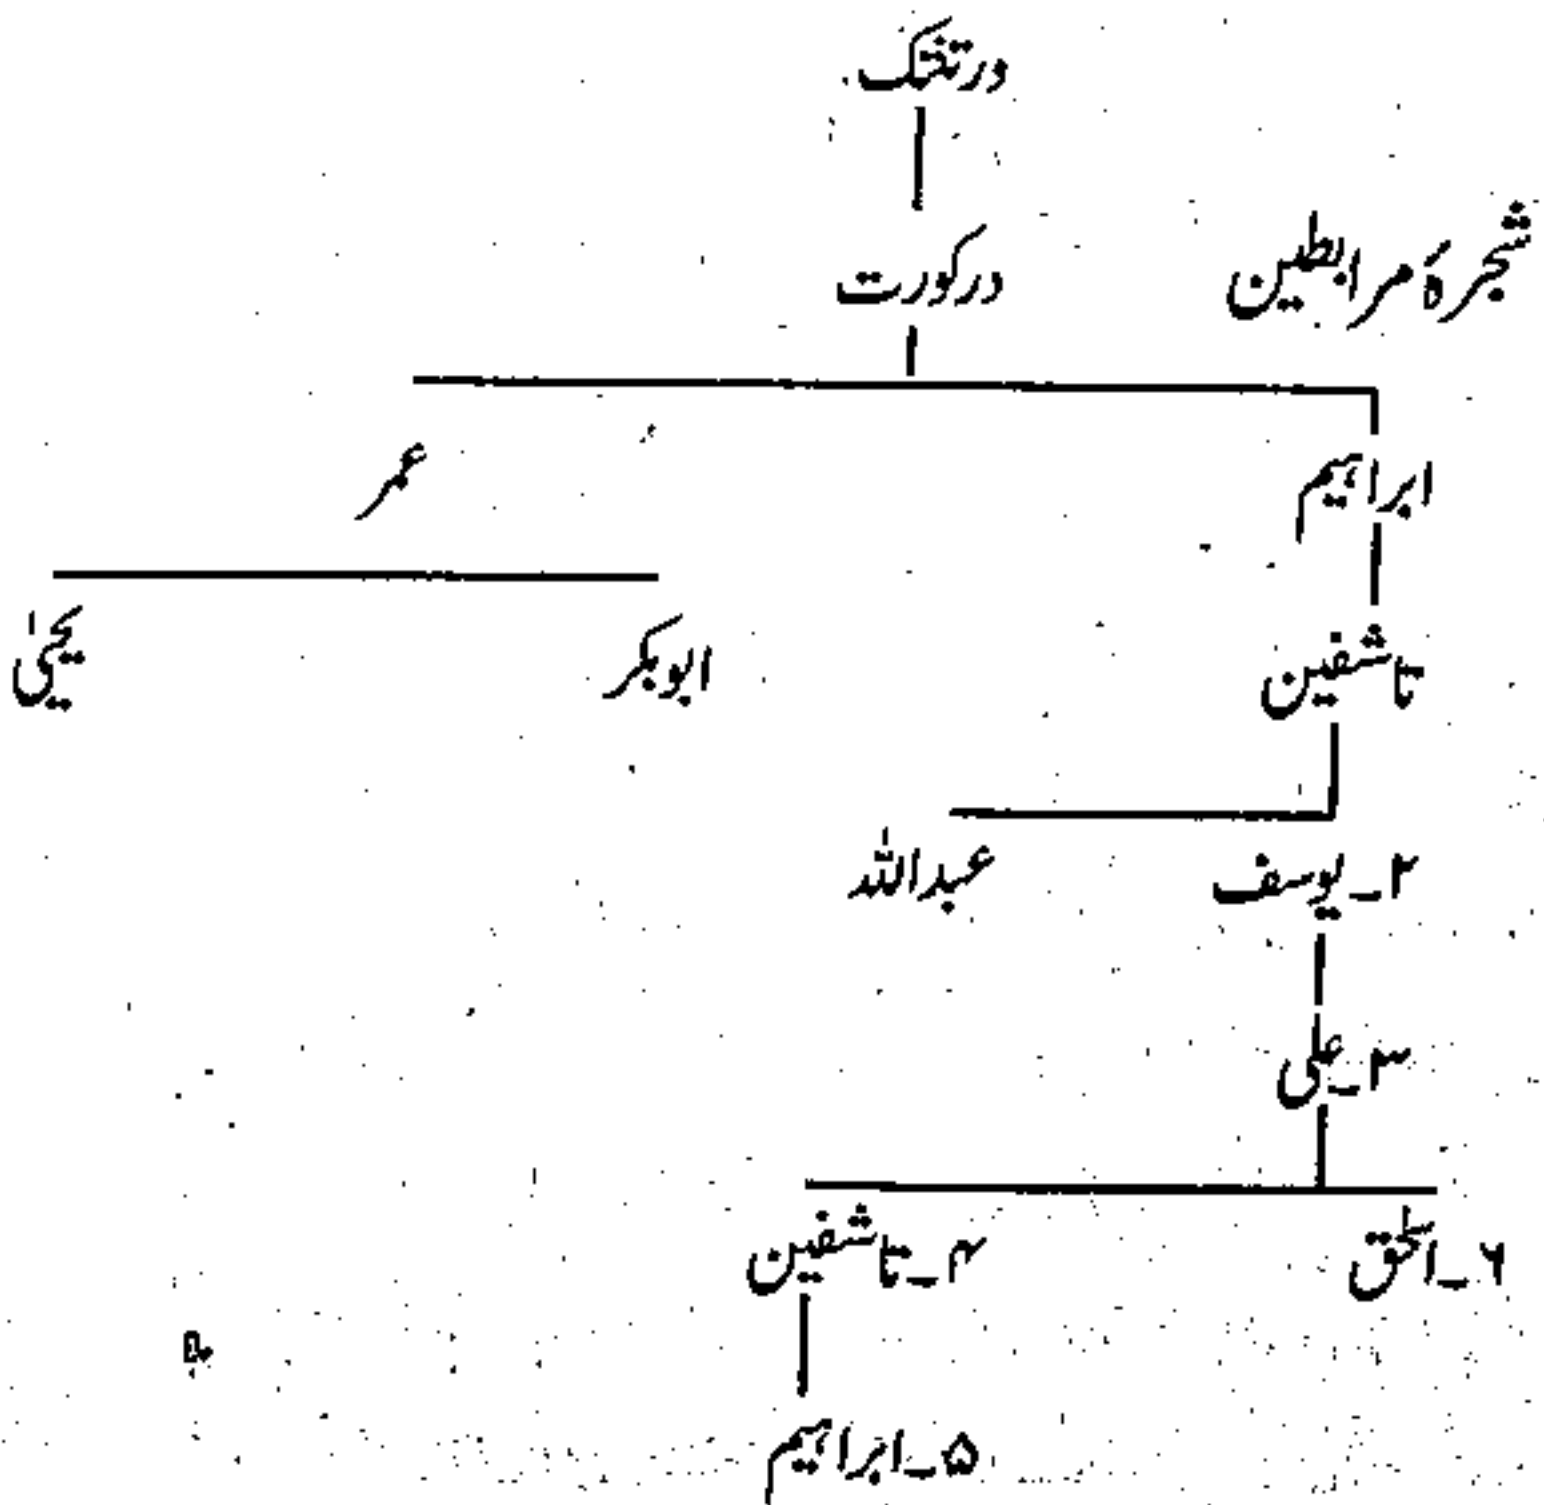 درتنتک
شجرۂ مرابطین
درکورت
ابراہیم
عمر
تاشفین
ابوبکر
یحییٰ
۲۔یوسف
عبداللہ
۳۔علی
۶۔اسحٰق
۴۔تاشفین
۵۔ابراہیم